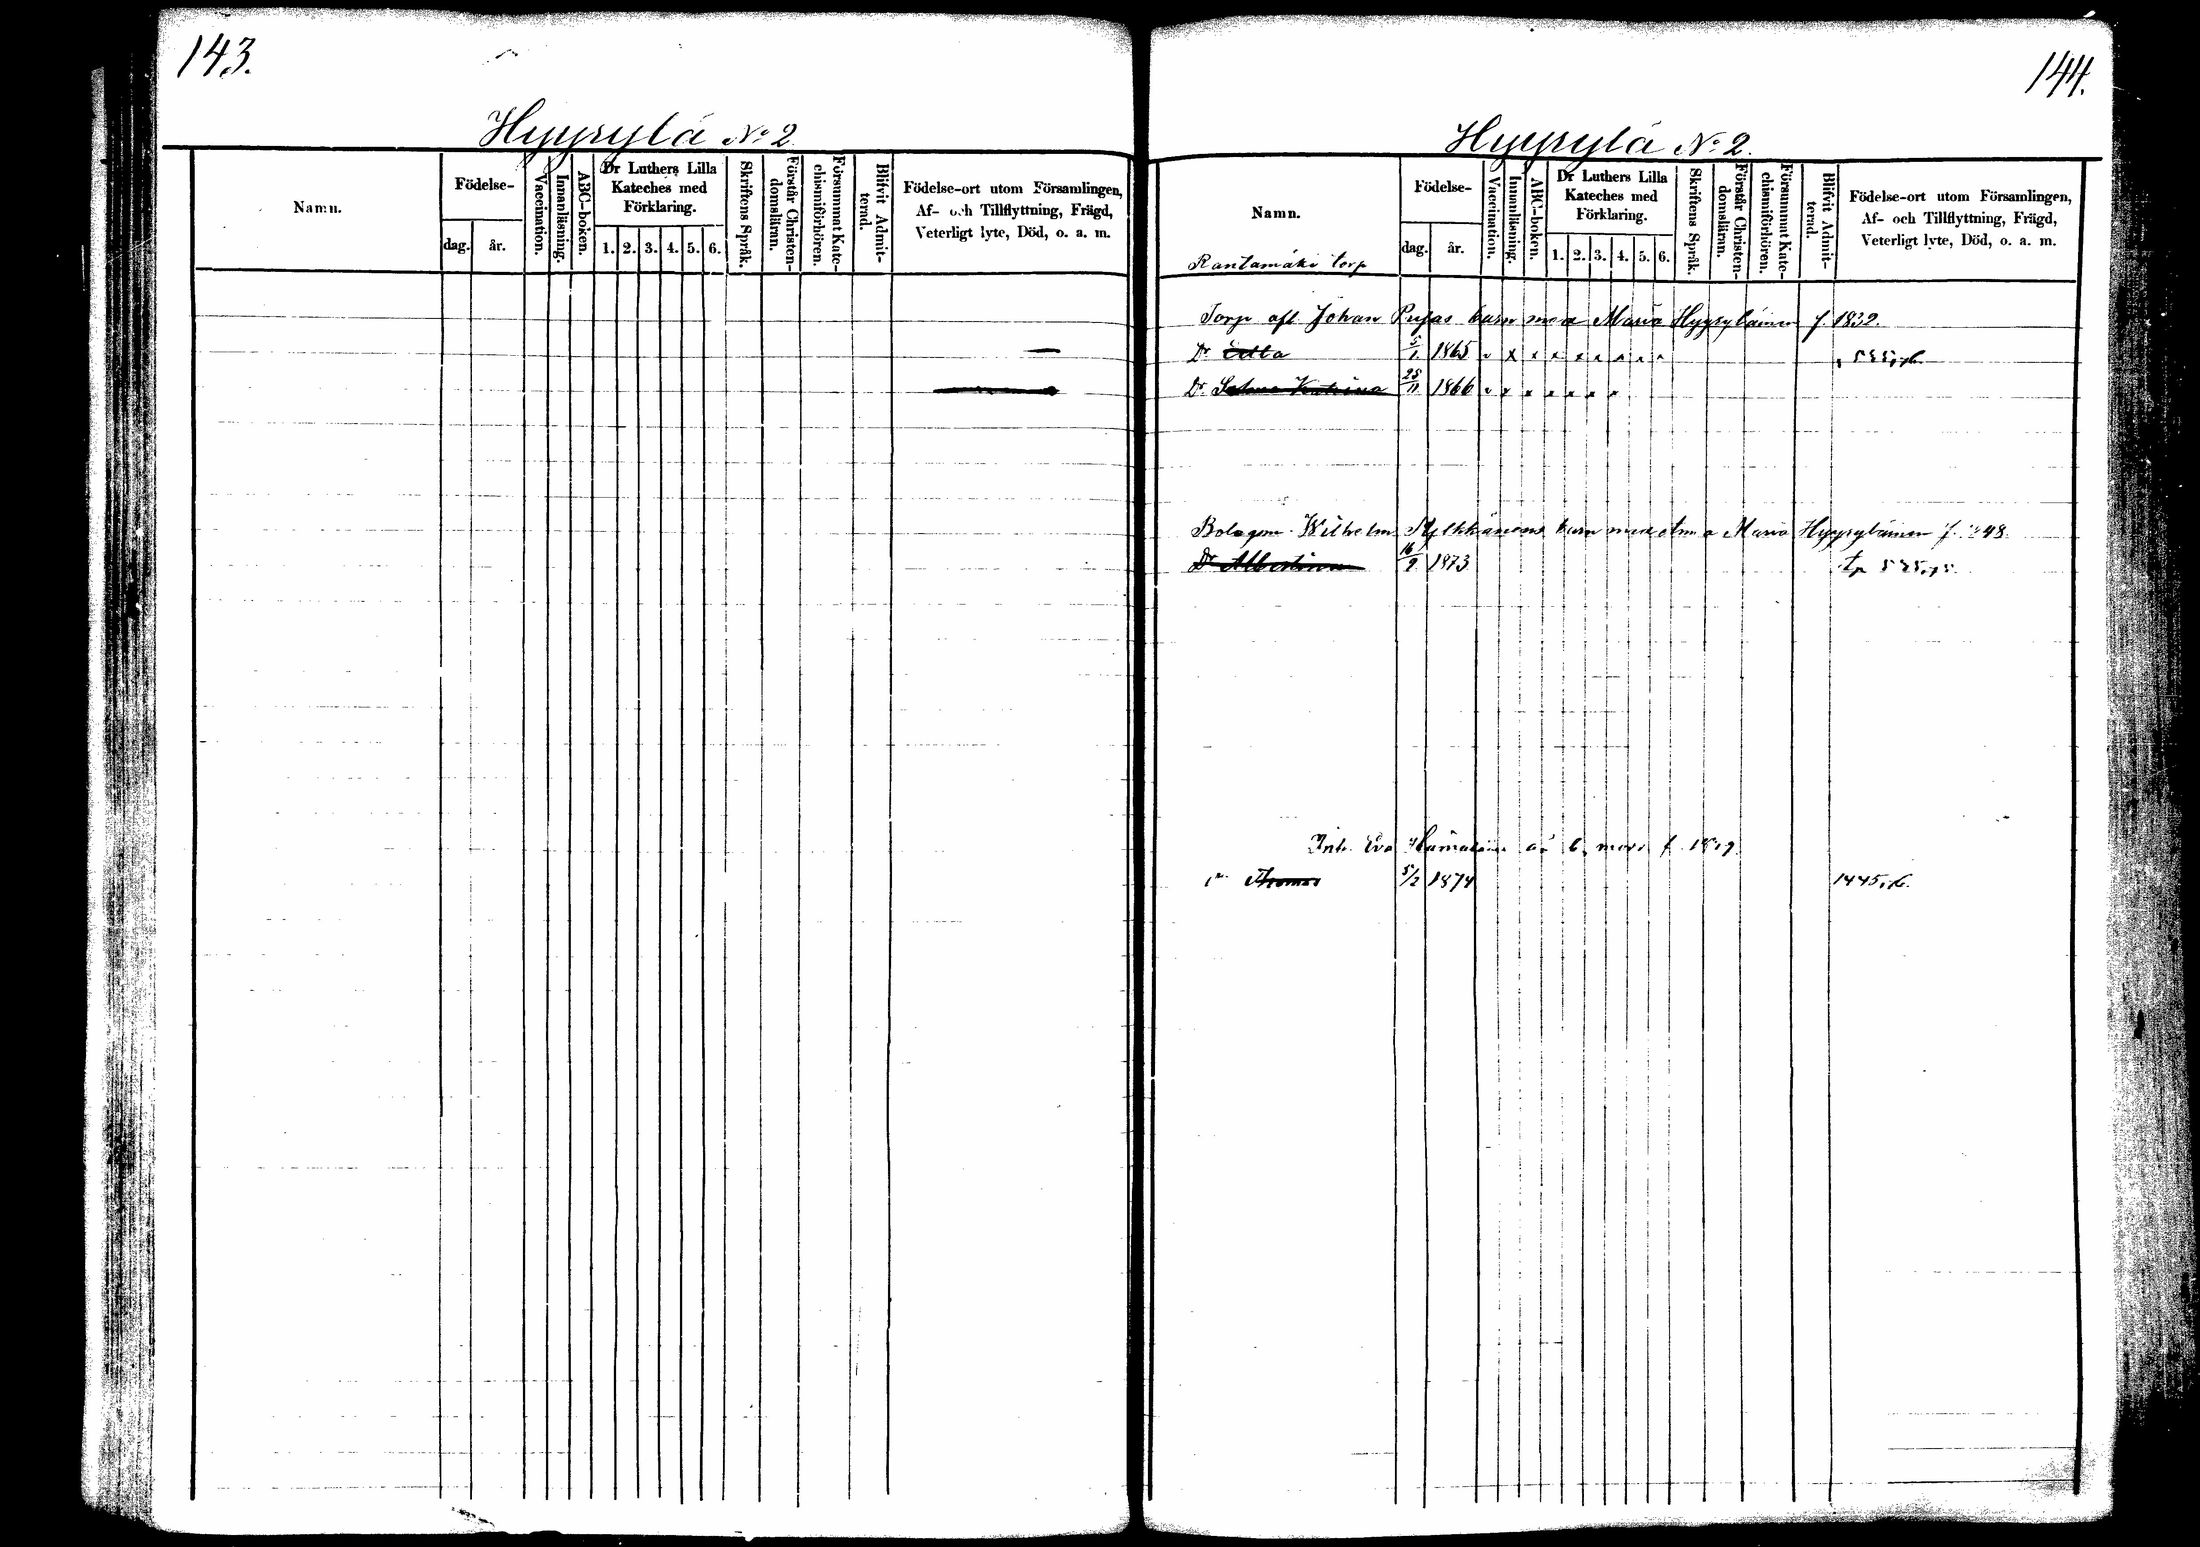 143.
Hyyrylä No 2.
Namn.
Födelse-
dag. år.
Vaccination.
Innanläsning.
ABC-boken.
Dr Luthers Lilla Kateches med Förklaring.
1. 2. 3. 4. 5. 6.
Skriftens Språk.
Förstår Christen-domsläran.
Försummat Kate-chismiförhören.
Blifvit Admit-terad.
Födelse-ort utom Församlingen,
Af- och Tillflyttning, Frägd,
Veterligt lyte, Död, o. a. m.
144.
Hyyrylä No 2.
Namn.
Rantamäki torp
Födelse-
dag. år.
Vaccination.
Innanläsning.
ABC-boken.
Dr Luthers Lilla Kateches med Förklaring.
1. 2. 3. 4. 5. 6.
Skriftens Språk.
Förstår Christen-domsläran.
Försummat Kate-chismiförhören.
Blifvit Admit-terad.
Födelse-ort utom Församlingen,
Af- och Tillflyttning, Frägd,
Veterligt lyte, Död, o. a. m.
Torp afl Johan Pufas barn med Maria Hyyryläinen f. 1832.
Dr 5/1 1865 v x x x x x x x x 535,76.
Dr Katrina 28/11 1866 v x x x x x x
Bolagsm Wilhelm barn med Anna Maria Hyyryläinen f. 48.
Dr Albertina 16/9 1873 535,75.
Inh. Eva f. 1819.
Thomas 5/2 1874 1445,76.